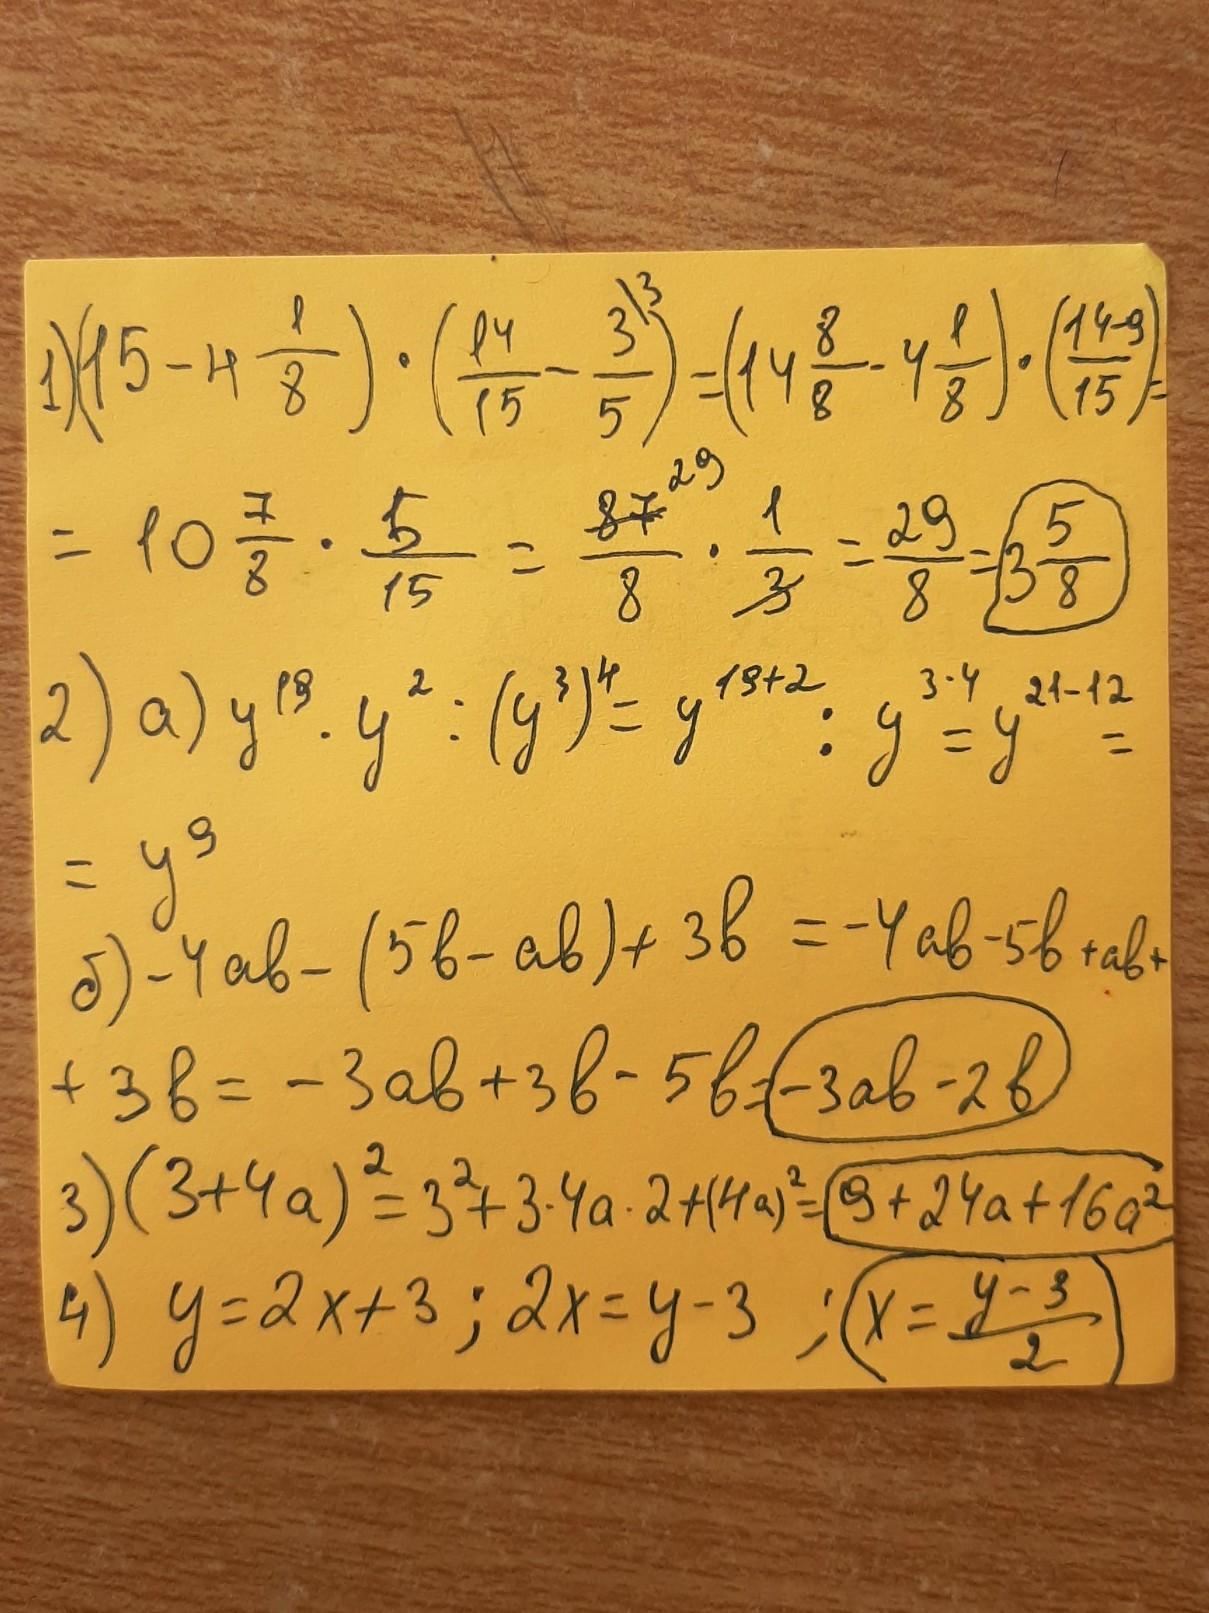 1) (15 - 4 1/8) · (14/15 - 3/5 \3) = (14 8/8 - 4 1/8) · (14-9/15) =
= 10 7/8 · 5/15 = 87 29/8 · 1/3 = 29/8 = 3 5/8
2) а) y^19 · y^2 : (y^3)^4 = y^19+2 : y^3·4 = y^21-12 =
= y^9
б) -4ab - (5b - ab) + 3b = -4ab - 5b + ab +
+ 3b = -3ab + 3b - 5b = -3ab - 2b
3) (3+4a)^2 = 3^2 + 3·4a·2 + (4a)^2 = 9 + 24a + 16a^2
4) y = 2x + 3 ; 2x = y - 3 ; x = y - 3/2